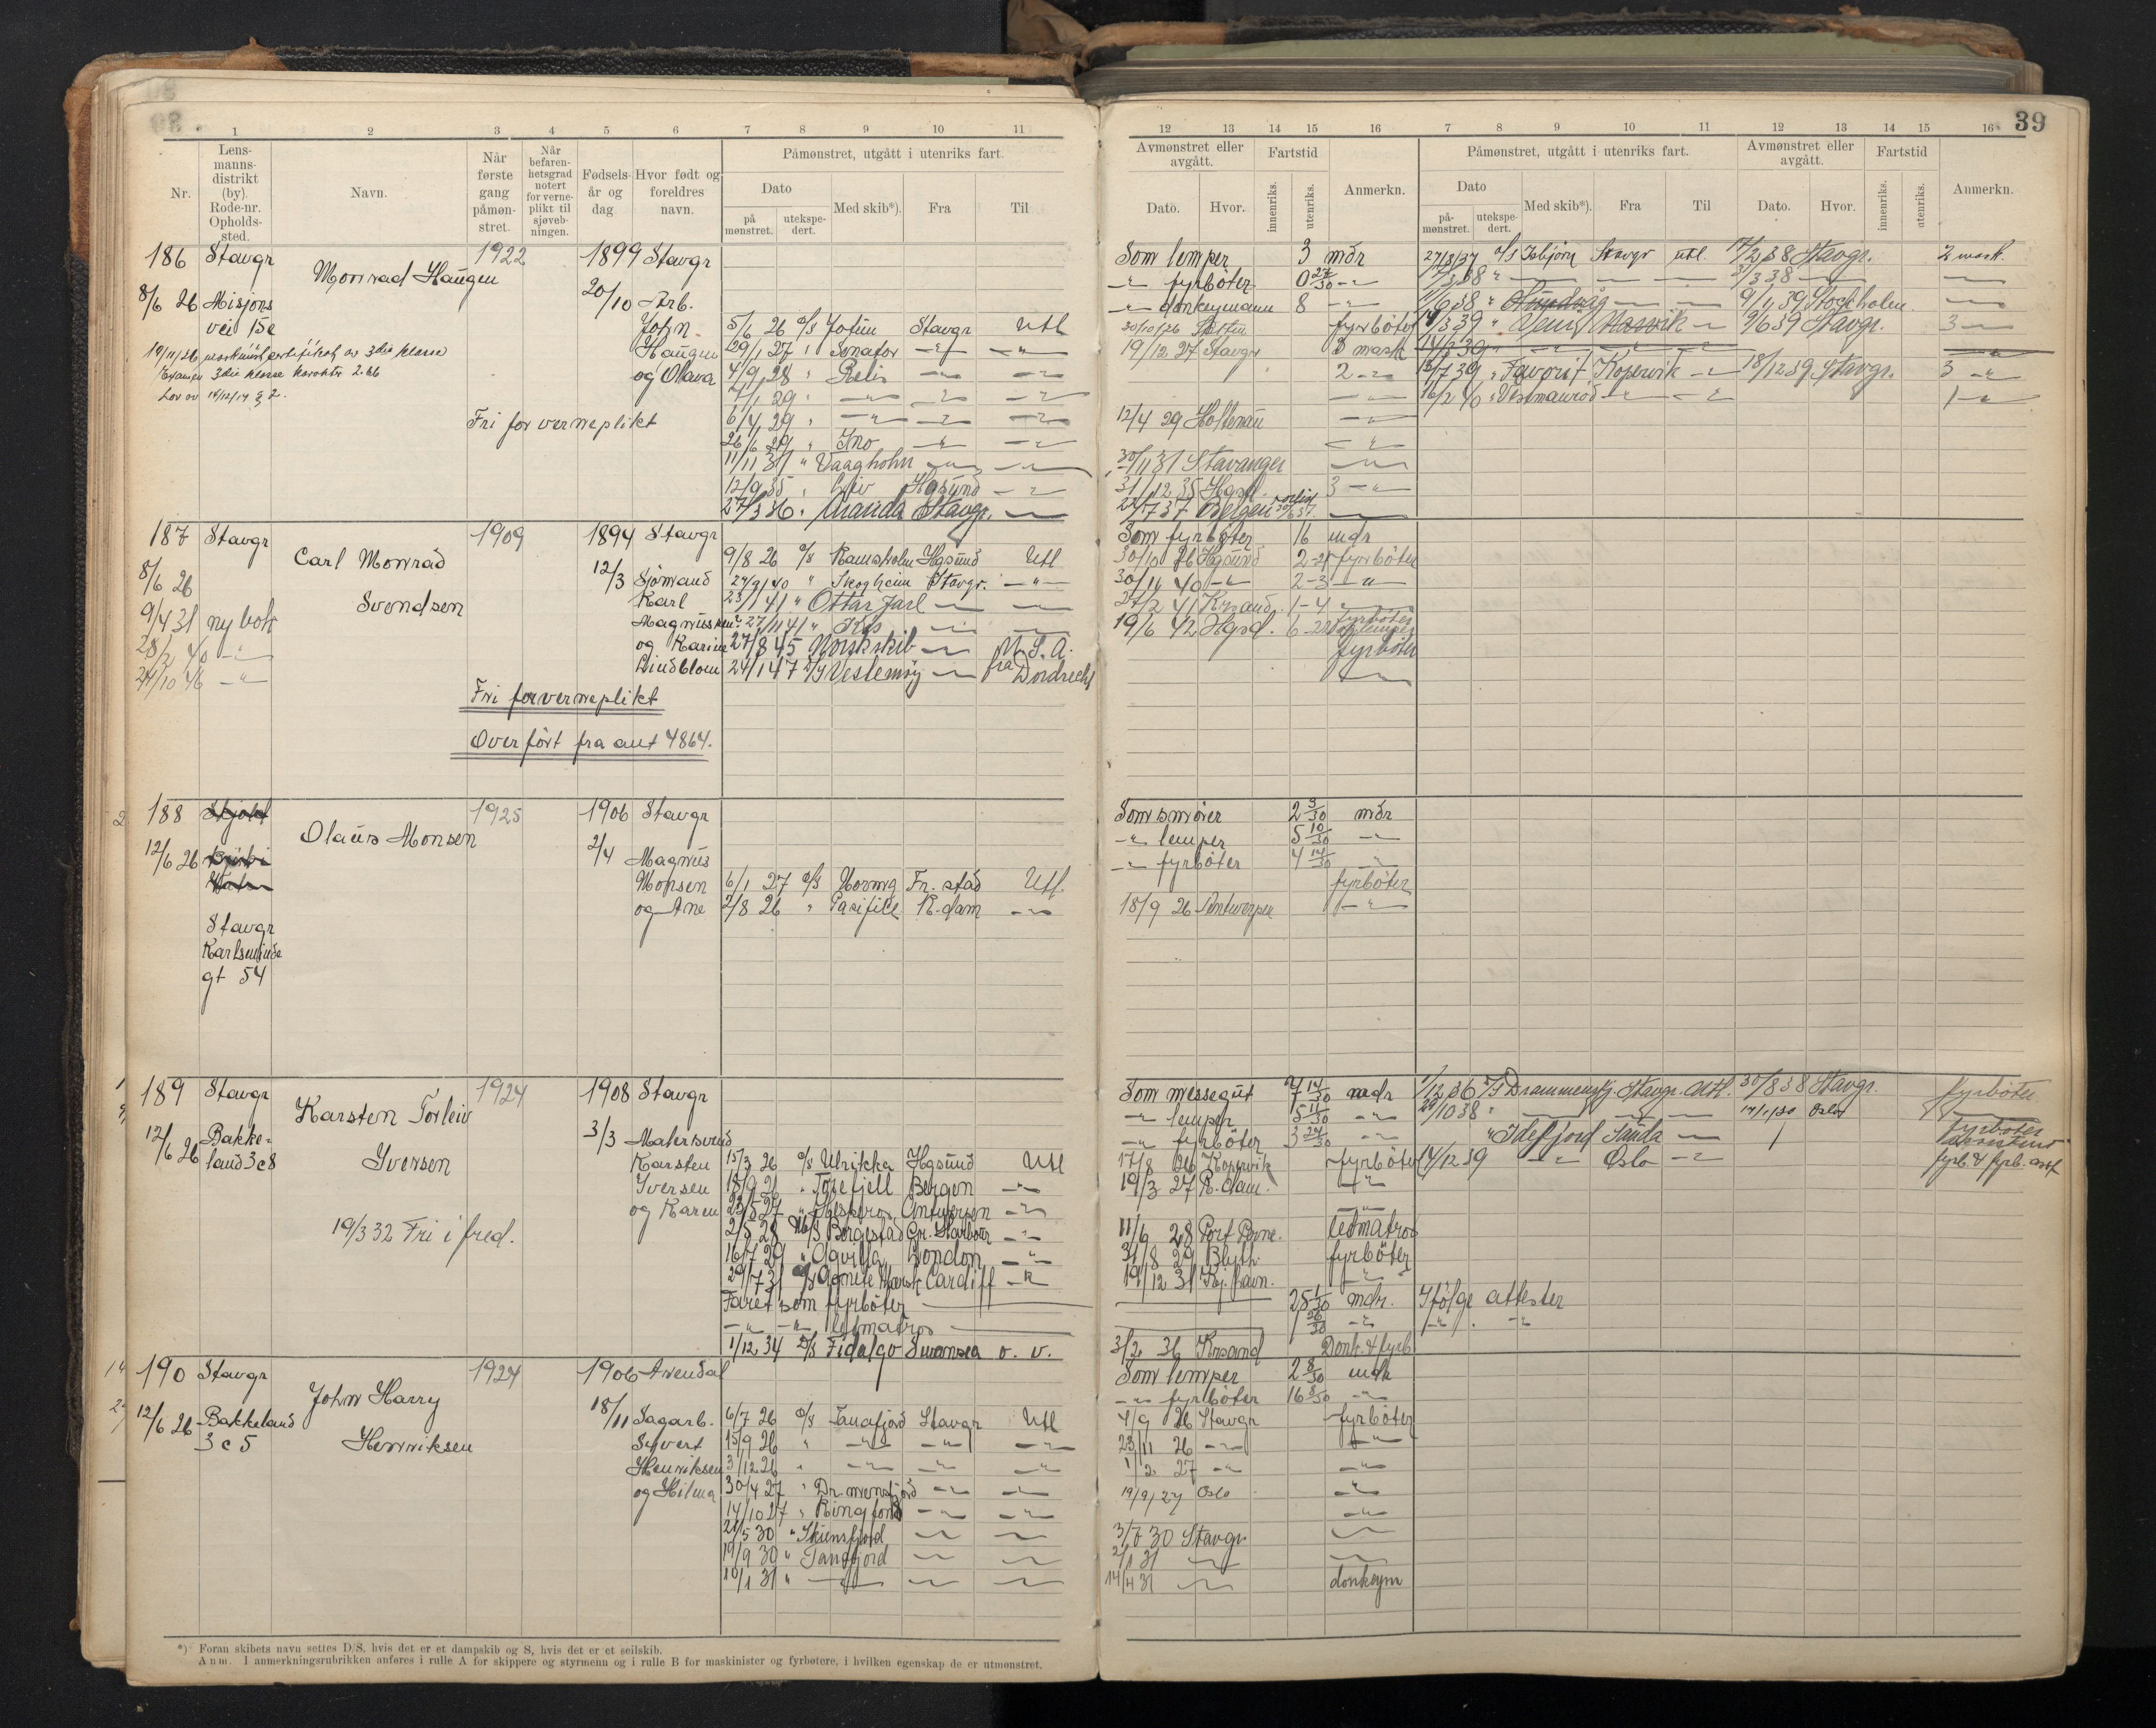 39
1 2 3 4 5 6 7 8 9 10 11
Nr.
Lens-
manns-
distrikt
(by).
Rode-nr.
Opholds-
sted.
Navn.
Når
første
gang
påmøn-
stret.
Når
befaren-
hetsgrad
notert
for verne-
plikt til
sjøveb-
ningen.
Fødsels-
år og
dag
Hvor født og
foreldres
navn.
Påmønstret, utgått i utenriks fart.
Dato
på
mønstret.
utekspe-
dert.
Med skib*).
Fra
Til
186 Stavgr Monrad Haugen 1922 1899 Stavgr
8/6 26 Misjons 20/10 Arb.
vei 15c John
Haugen
og Olava
5/6 26 D/S Jotun Stavgr Utl
29/1 27 " Senator —"— —"—
4/9 28 " Relis —"— —"—
7/1 29 " —"— —"— —"—
6/4 29 " —"— —"— —"—
26/6 29 " Ino —"— —"—
11/11 31 " Vaagholm —"— —"—
12/9 35 " Liv Hgsund —"—
27/3 36 " Ananda Stavgr. —"—
Fri for verneplikt
187 Stavgr Carl Monrad Svendsen 1909 1894 Stavgr
8/6 26 12/3 Sjömand
9/4 31 ny bok Karl
28/2 40 —"—
24/10 46 —"— og Karine
Lindblom
9/8 26 D/S Ramsholm Hgsund Utl
27/9 40 " Skogheim Stavgr. —"—
23/1 41 " Ottar Jarl —"— —"—
27/8 45 Norsk skib —"— U.S.A.
24/1 47 D/S Vestemöy —"— fra Dordrecht
Fri for verneplikt
Overfört fra ant 4864.
188 Olaus Monsen 1925 1906 Stavgr
12/6 26 2/4 Magnus
Monsen
og Ane
Stavgr
Karlsminde
gt 54
6/1 27 D/S Norning Fr.stad Utl.
2/8 26 " Pacific R.dam —"—
189 Stavgr Karsten Torleiv Iversen 1924 1908 Stavgr
12/6 26 Bakke-
land 3c8
3/3 Malersvend
Karsten
Iversen
og Karen
19/3 32 Fri i fred.
15/3 26 D/S Ulrikka Hgsund Utl
18/9 26 " Torefjell Bergen —"—
23/5 27 " Hesperos Antwerpen —"—
2/5 28 M/S Borgestad Gr. Starboer —"—
16/7 29 " Ogvilla London —"—
29/7 31 D/S Agnete Mærsk Cardiff —"—
Faret som fyrböter
—"— —"— letmatros
1/12 34 D/S Fidalgo Swansea o. v.
190 Stavgr John Harry Henriksen 1924 1906 Arendal
12/6 26 Bakkeland 18/11 Sagarb.
3 c 5 Syvert
Henriksen
og Hilma
6/7 26 D/S Tanafjord Stavgr Utl
15/9 26 " —"— —"— —"—
3/12 26 " —"— —"— —"—
30/4 27 " Dr.mensfjord —"— —"—
14/10 27 " Ringfond —"— —"—
21/5 30 " Skiensfjord —"— —"—
19/9 30 " Tanafjord —"— —"—
10/1 31 " —"— —"— —"—
*) Foran skibets navn settes D/S, hvis det er et dampskib og S, hvis det er et seilskib.
Anm. I anmerkningsrubrikken anføres i rulle A for skippere og styrmenn og i rulle B for maskinister og fyrbøtere, i hvilken egenskap de er utmønstret.
12 13 14 15 16 7 8 9 10 11 12 13 14 15 16
Avmønstret eller
avgått.
Dato.
Hvor.
Fartstid
innenriks.
utenriks.
Anmerkn.
Påmønstret, utgått i utenriks fart.
Dato
på-
mønstret.
utekspe-
dert.
Med skib*).
Fra
Til
Avmønstret eller
avgått.
Dato.
Hvor.
Fartstid
innenriks.
utenriks.
Anmerkn.
Som lemper 3 mdr
27/8 37 D/S Isbjörn Stavgr utl. 17/2 38 Stavgr. 2 mask.
—"— fyrböter 0 27/30 —"—
—"— donkeymann 8 —"—
9/1 39 Stockholm
fyrböter
9/6 39 Stavgr. 3 —"—
19/12 27 Stavgr 3 mask
2 —"—
" Favorit Kopervik —"— 18/12 39 Stavgr. 3 —"—
16/2 40 " Vestmanrod —"— —"— 1 —"—
12/4 29 Holtenau —"—
30/11 31 Stavanger —"—
31/12 35 Hgsd. 3 —"—
22/7 37 Bergen
Som fyrböter 16 mdr
30/10 26 Hgsund 2-21 fyrböter
30/11 40 —"— 2-3 —"—
27/2 41 Krsand. 1-4 —"—
19/6 42 Hgsd. 6-22 fyrböter
fyrböter
Som smörer 2 9/30 mdr
—"— lemper 5 10/30 —"—
—"— fyrböter 4 14/30 —"—
fyrböter
18/9 26 Antwerpen —"—
Som messegut 7 14/30 mdr
1/12 36 D/S Drammensfj. Stavgr. Utl. 30/8 38 Stavgr. fyrböter
—"— lemper 5 11/30 —"—
29/10 38 " —"— —"— —"— Oslo
—"— fyrböter 3 24/30 —"—
" Idefjord Sauda —"— fyrböter
assistent
17/8 26 Kopervik fyrböter
14/12 39 —"— Oslo —"— fyrb. & fyrb. asst
19/3 27 R.dam. —"—
11/6 28 Port Perne. letmatros
31/8 29 Blyth fyrböter
19/12 31 Kj.havn. —"—
25 1/30 mdr. Ifölge attester
1 26/30 —"— —"— —"—
3/2 36 Krsand Donk. & fyrb
Som lemper 2 8/30 mdr
—"— fyrböter 16 8/30 —"—
4/9 26 Stavgr fyrböter
23/11 26 —"— —"—
1/2 27 —"— —"—
19/9/27 Oslo —"—
3/7 30 Stavgr. —"—
2/1 31 —"— —"—
14/4 31 —"— donkeym